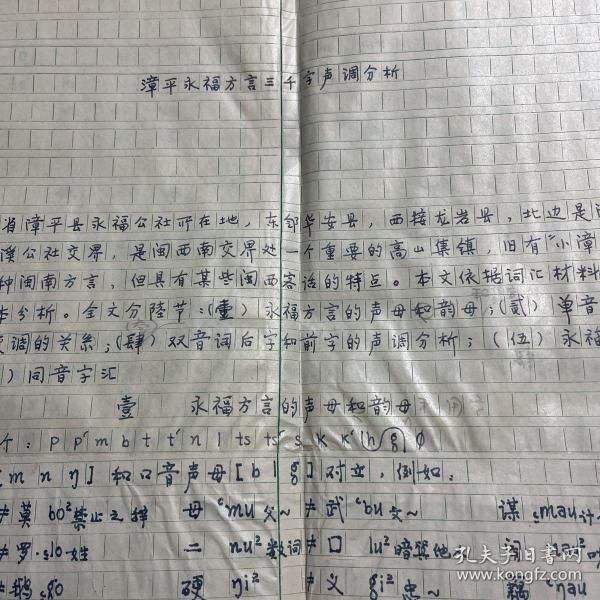 漳平永福方言三千字声调分析
省漳平县永福公社所在地，东邻华安县，西接龙岩县，北边是
公社交界，是闽西南交界处一个重要的高山集镇，旧有“小漳
种闽南方言，但具有某些闽西客话的特点。本文依据词汇材料
分析。全文分陸节：（壹）永福方言的声母和韵母；（贰）单音
变调的关系；（肆）双音词后字和前字的声调分析；（伍）永福
）同音字汇
壹 永福方言的声母和韵母
个：p pʻ m b t tʻ n l ts tsʻ s k kʻ h g ∅
[m n ŋ] 和口音声母 [b l g] 对立，例如：
≠莫 bo² 禁止之辞 母 ᶜmu 父~ ≠ 武 ᶜbu 文~ 谋 ꜁mau 计
≠罗 ꜁lo 姓 二 nu² 数词 ≠ 口 lu² 暗算他
≠鹅 ꜁go 硬 ŋi² ≠ 义 gi² 忠~ 藕 ᶜŋau
孔夫子旧书网
www.kongfz.com